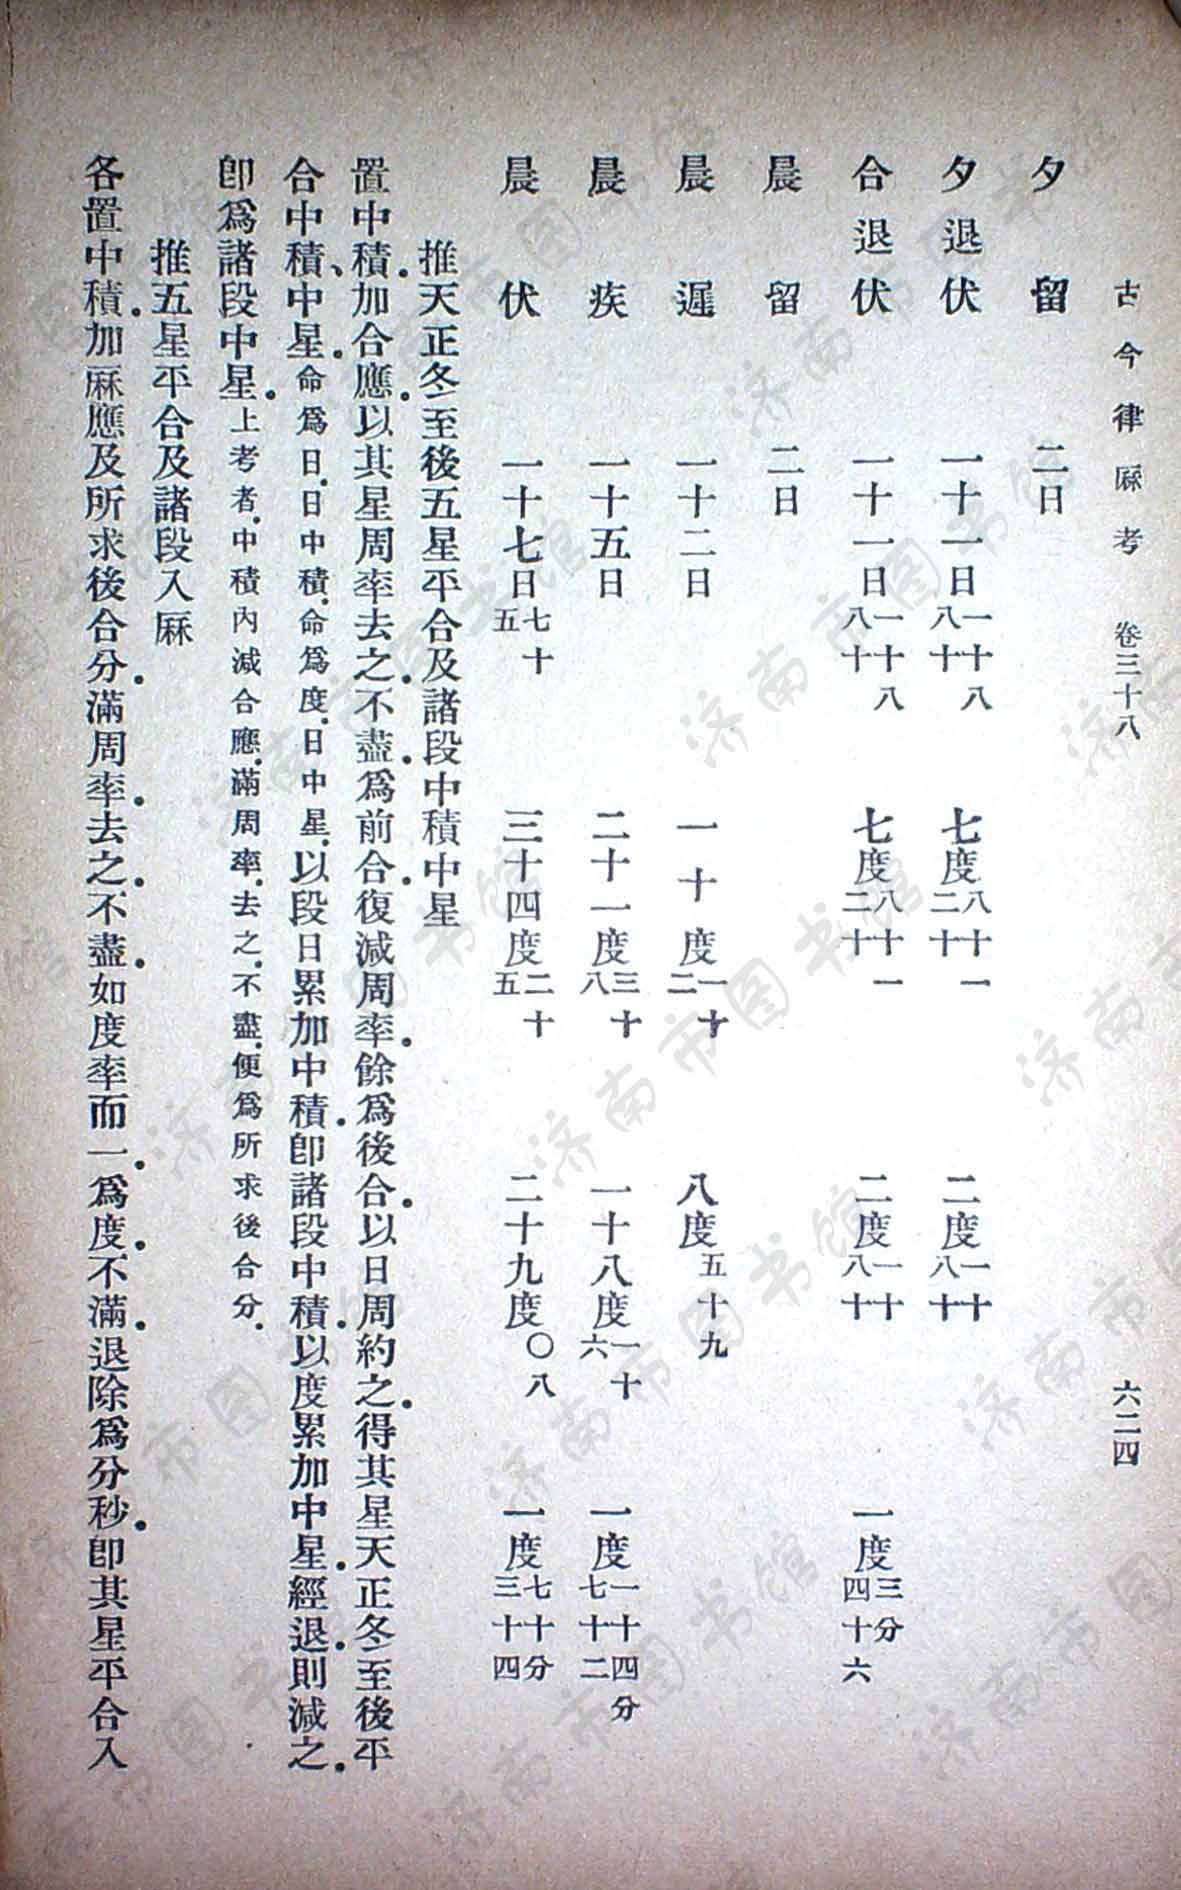 古今律厤考　卷三十八　六二四
夕留　二日
夕退伏　一十一日一十八八十　七度八十一二十　二度一十八十
合退伏　一十一日一十八八十　七度八十一二十　二度一十八十　一度三分四十六
晨留　二日
晨遲　一十二日　一十度一十二　八度五十九
晨疾　一十五日　二十一度三十八　一十八度一十六　一度一十四分七十二
晨伏　一十七日七十五　三十四度二十五　二十九度〇八　一度七十分三十四
推天正冬至後五星平合及諸段中積中星
置中積。加合應。以其星周率去之。不盡。爲前合。復減周率。餘爲後合。以日周約之。得其星天正冬至後平
合中積、中星。命爲日。日中積。命爲度。日中星。以段日累加中積。卽諸段中積。以度累加中星。經退。則減之。
卽爲諸段中星。上考者。中積內減合應。滿周率。去之。不盡。便爲所求後合分。
推五星平合及諸段入厤
各置中積。加厤應及所求後合分。滿周率。去之。不盡。如度率而一。爲度。不滿。退除爲分秒。卽其星平合入